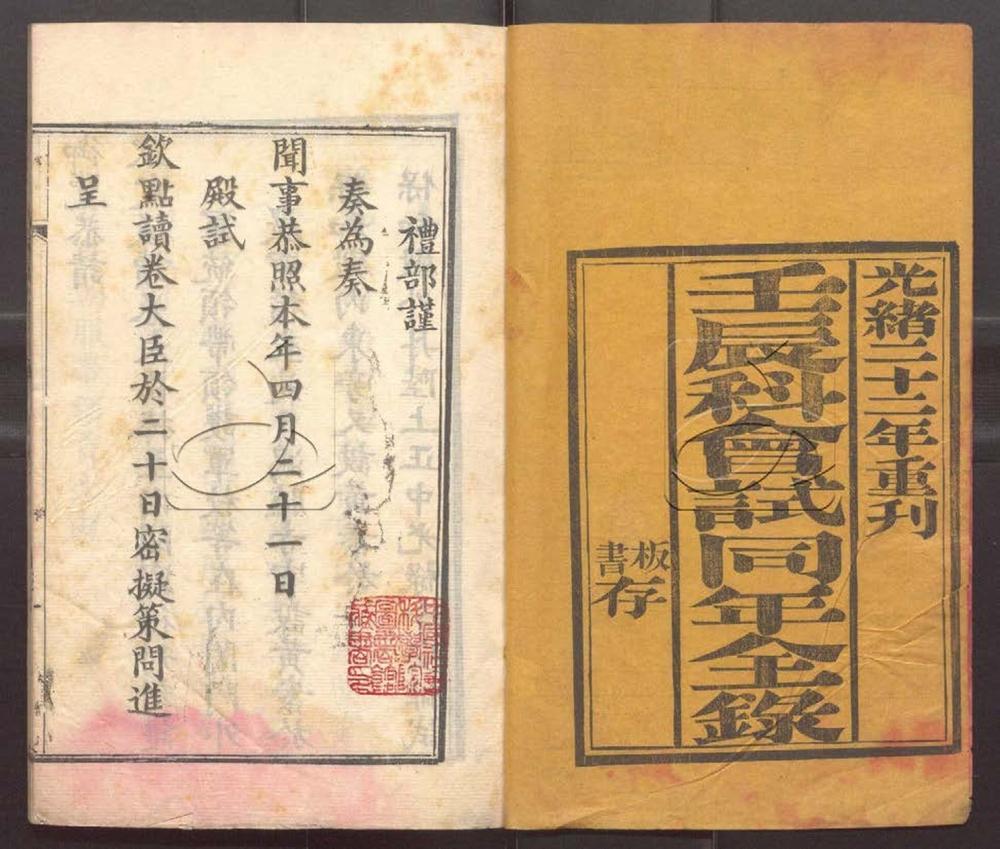 光緒二十二年重刊
壬辰科會試同年全錄
板存
書
禮部謹
奏為奏
聞事恭照本年四月二十一日
殿試
欽點讀卷大臣於二十日密擬策問進
呈